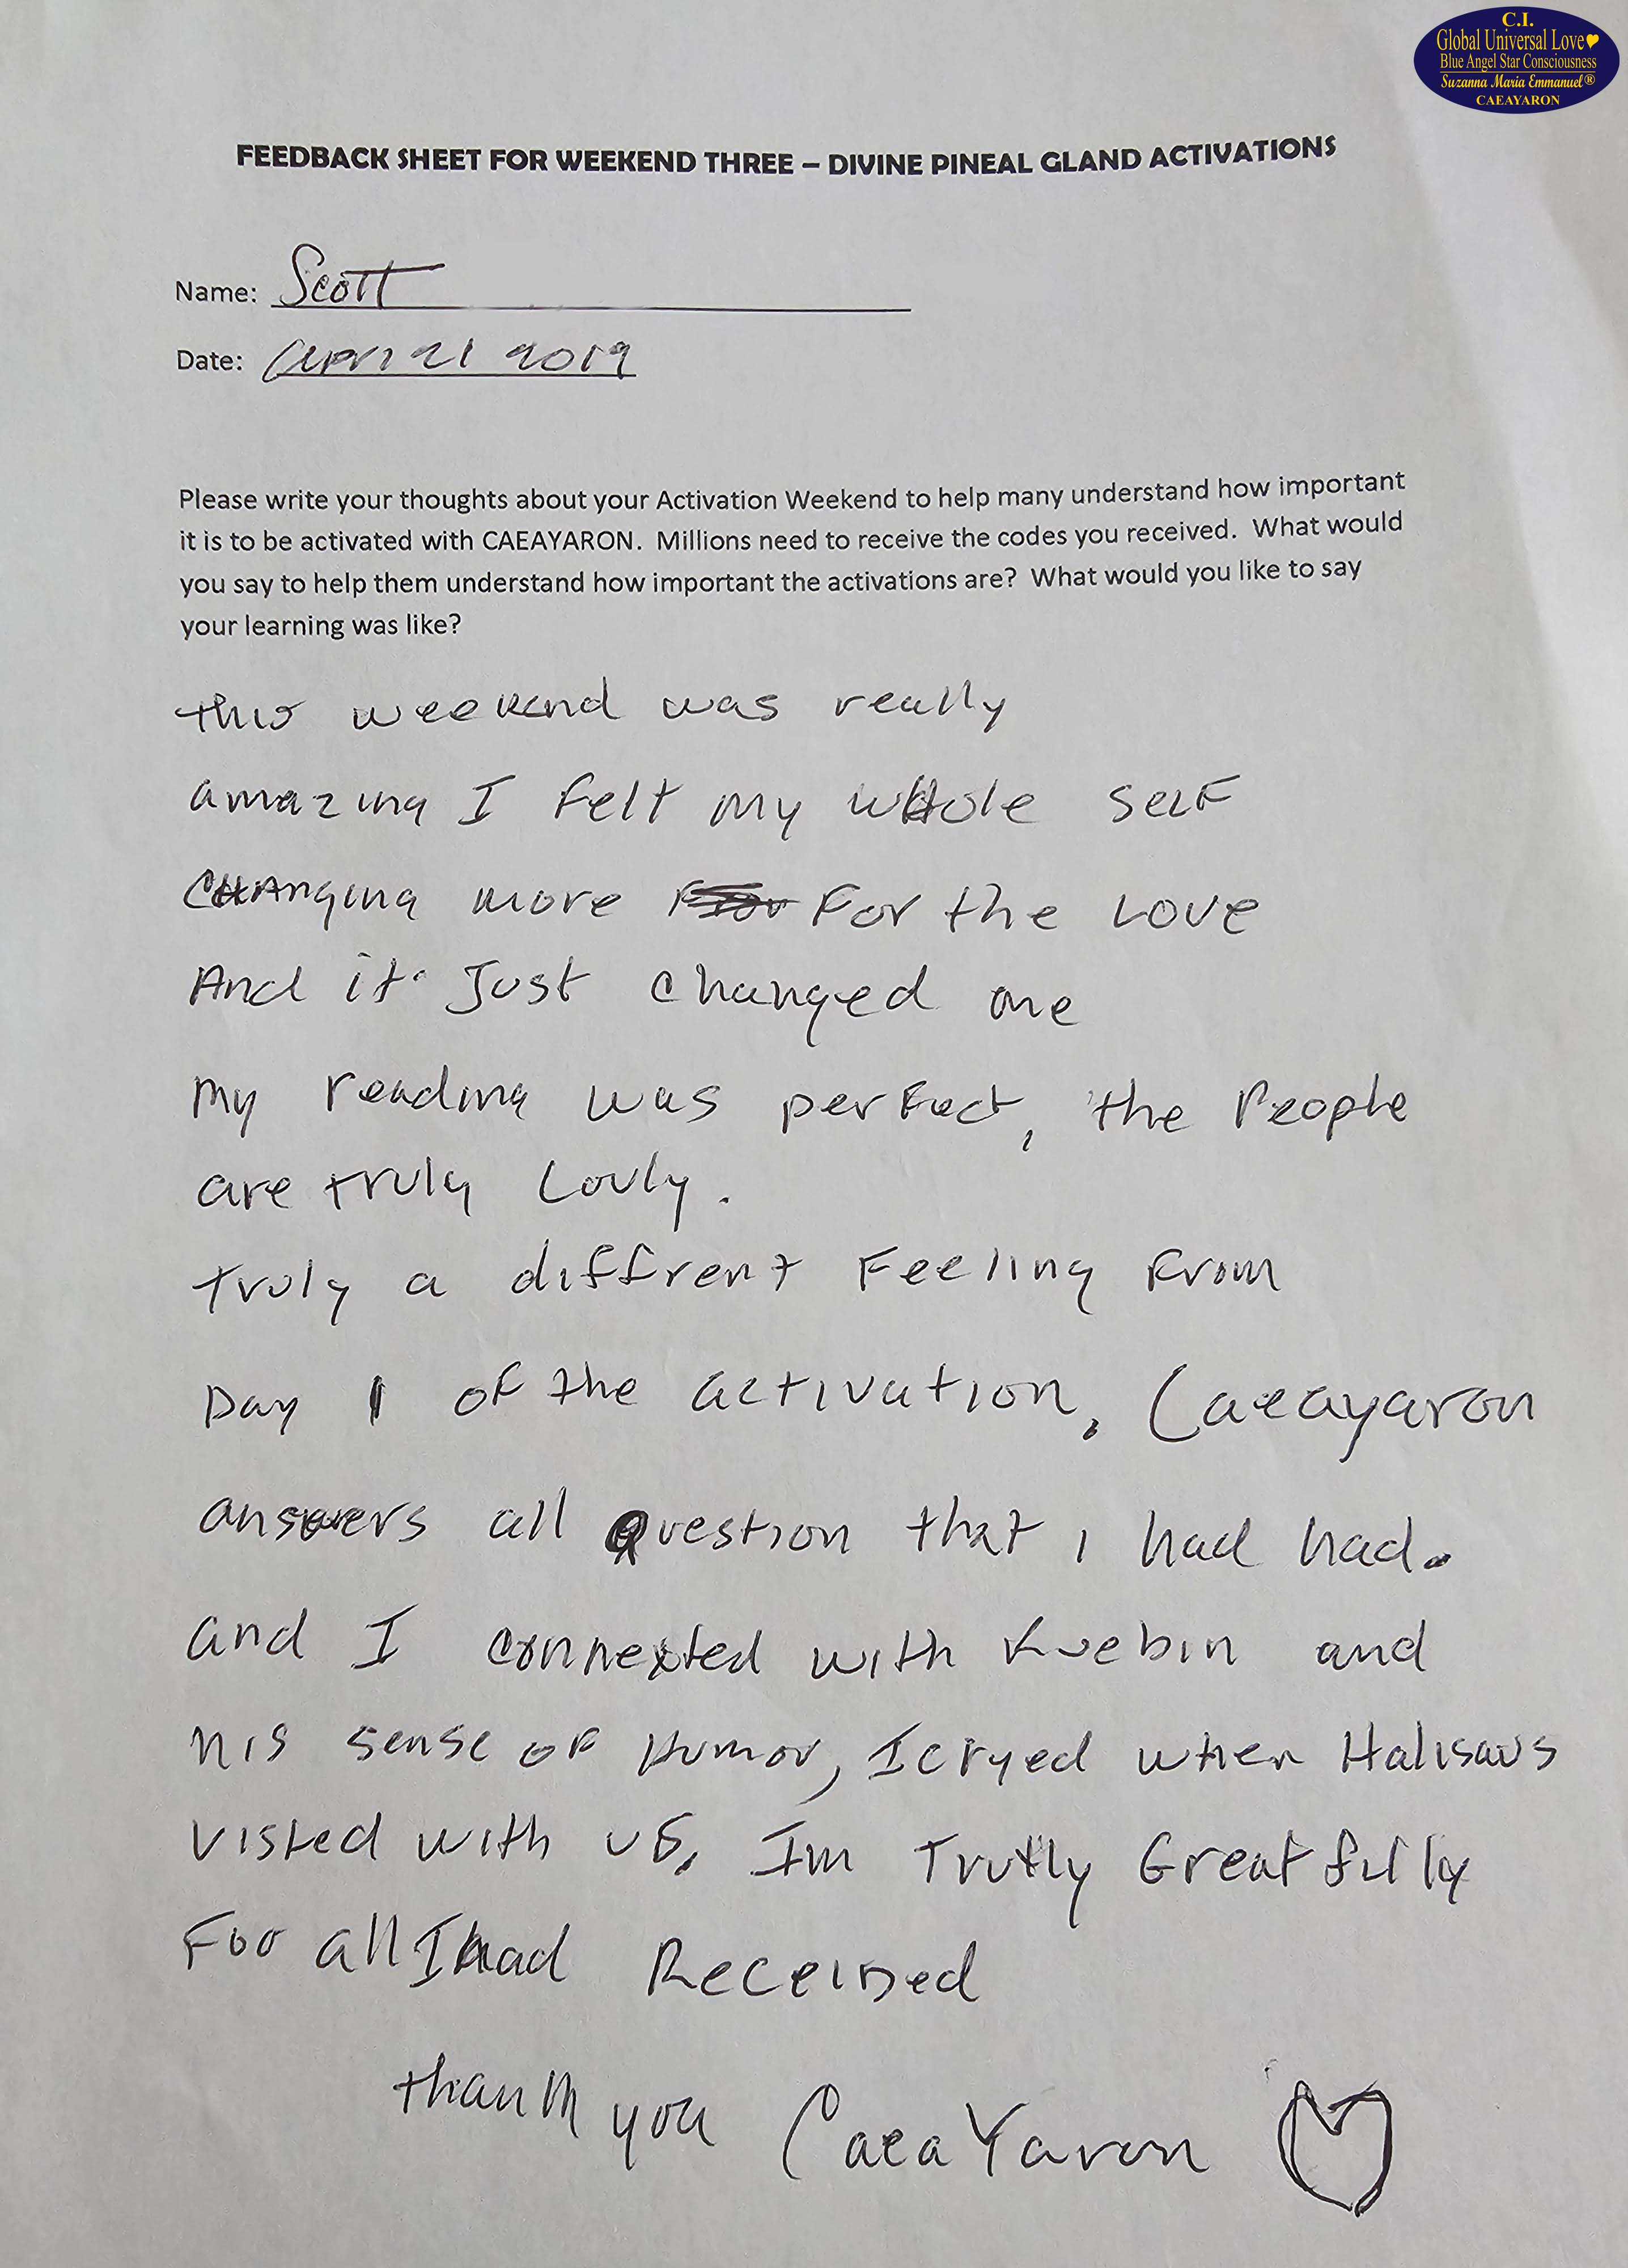 C.I.
Global Universal Love
Blue Angel Star Consciousness
Suzanna Maria Emmanuel®
CAEAYARON
FEEDBACK SHEET FOR WEEKEND THREE – DIVINE PINEAL GLAND ACTIVATIONS
Name: Scott
Date: April 21 2019
Please write your thoughts about your Activation Weekend to help many understand how important
it is to be activated with CAEAYARON. Millions need to receive the codes you received. What would
you say to help them understand how important the activations are? What would you like to say
your learning was like?
this weekend was really
amazing I felt my wHole SELF
CHAnging more For the LOVE
And it Just changed me
My reading was perFect, the People
are truly Lovly.
truly a diffrent Feeling From
Day 1 of the activation. Caeayaron
answers all Question that i had had.
and I connexted with Kuebin and
his sense of Humor, I cryed when Halisaus
Visted with us. Im Trutly Greatfully
For all I had Received
thank you CaeaYaron